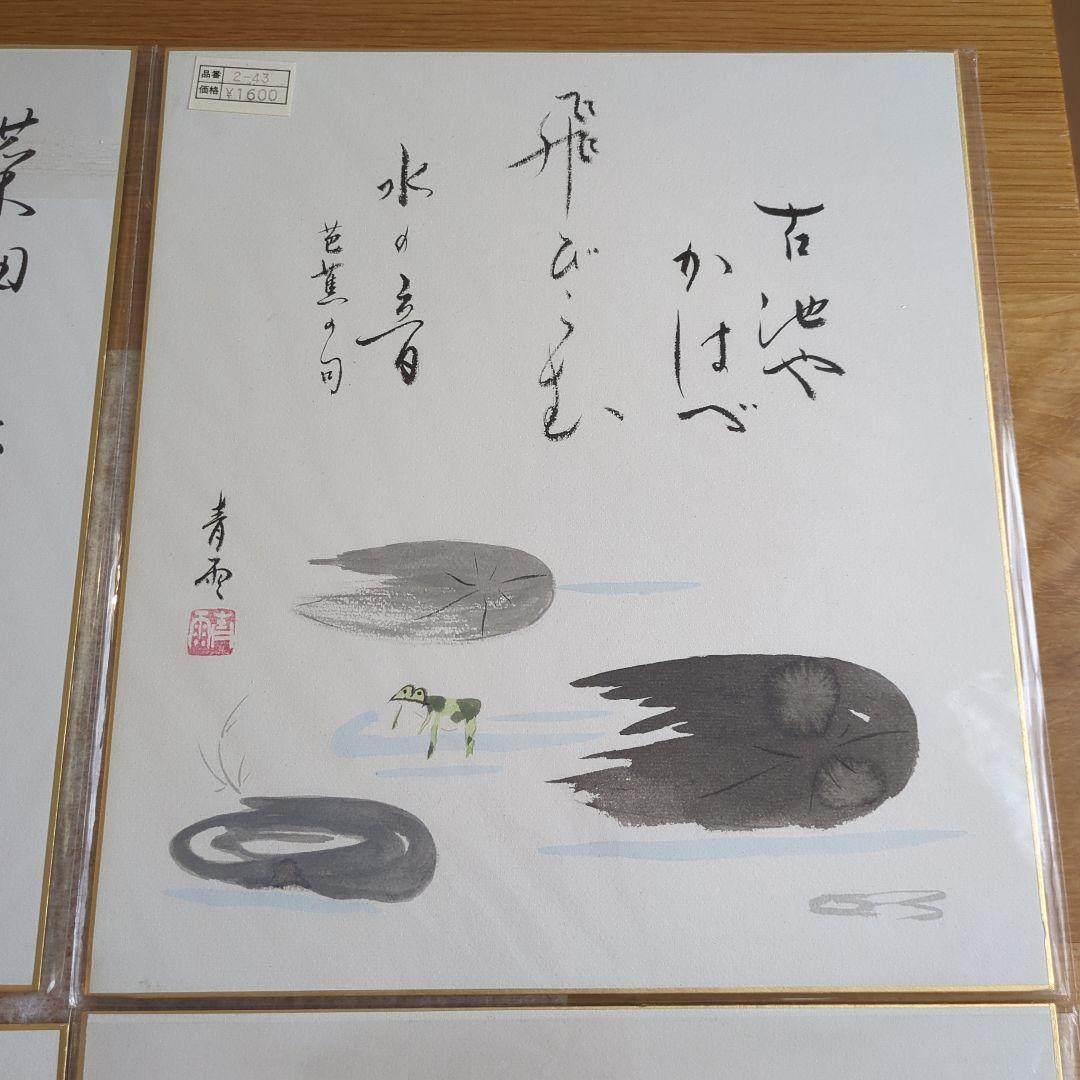 品番 2-43
価格 ¥1600
古池や
かはづ
飛びこむ
水の音
芭蕉の句
青雨
青雨
菜田